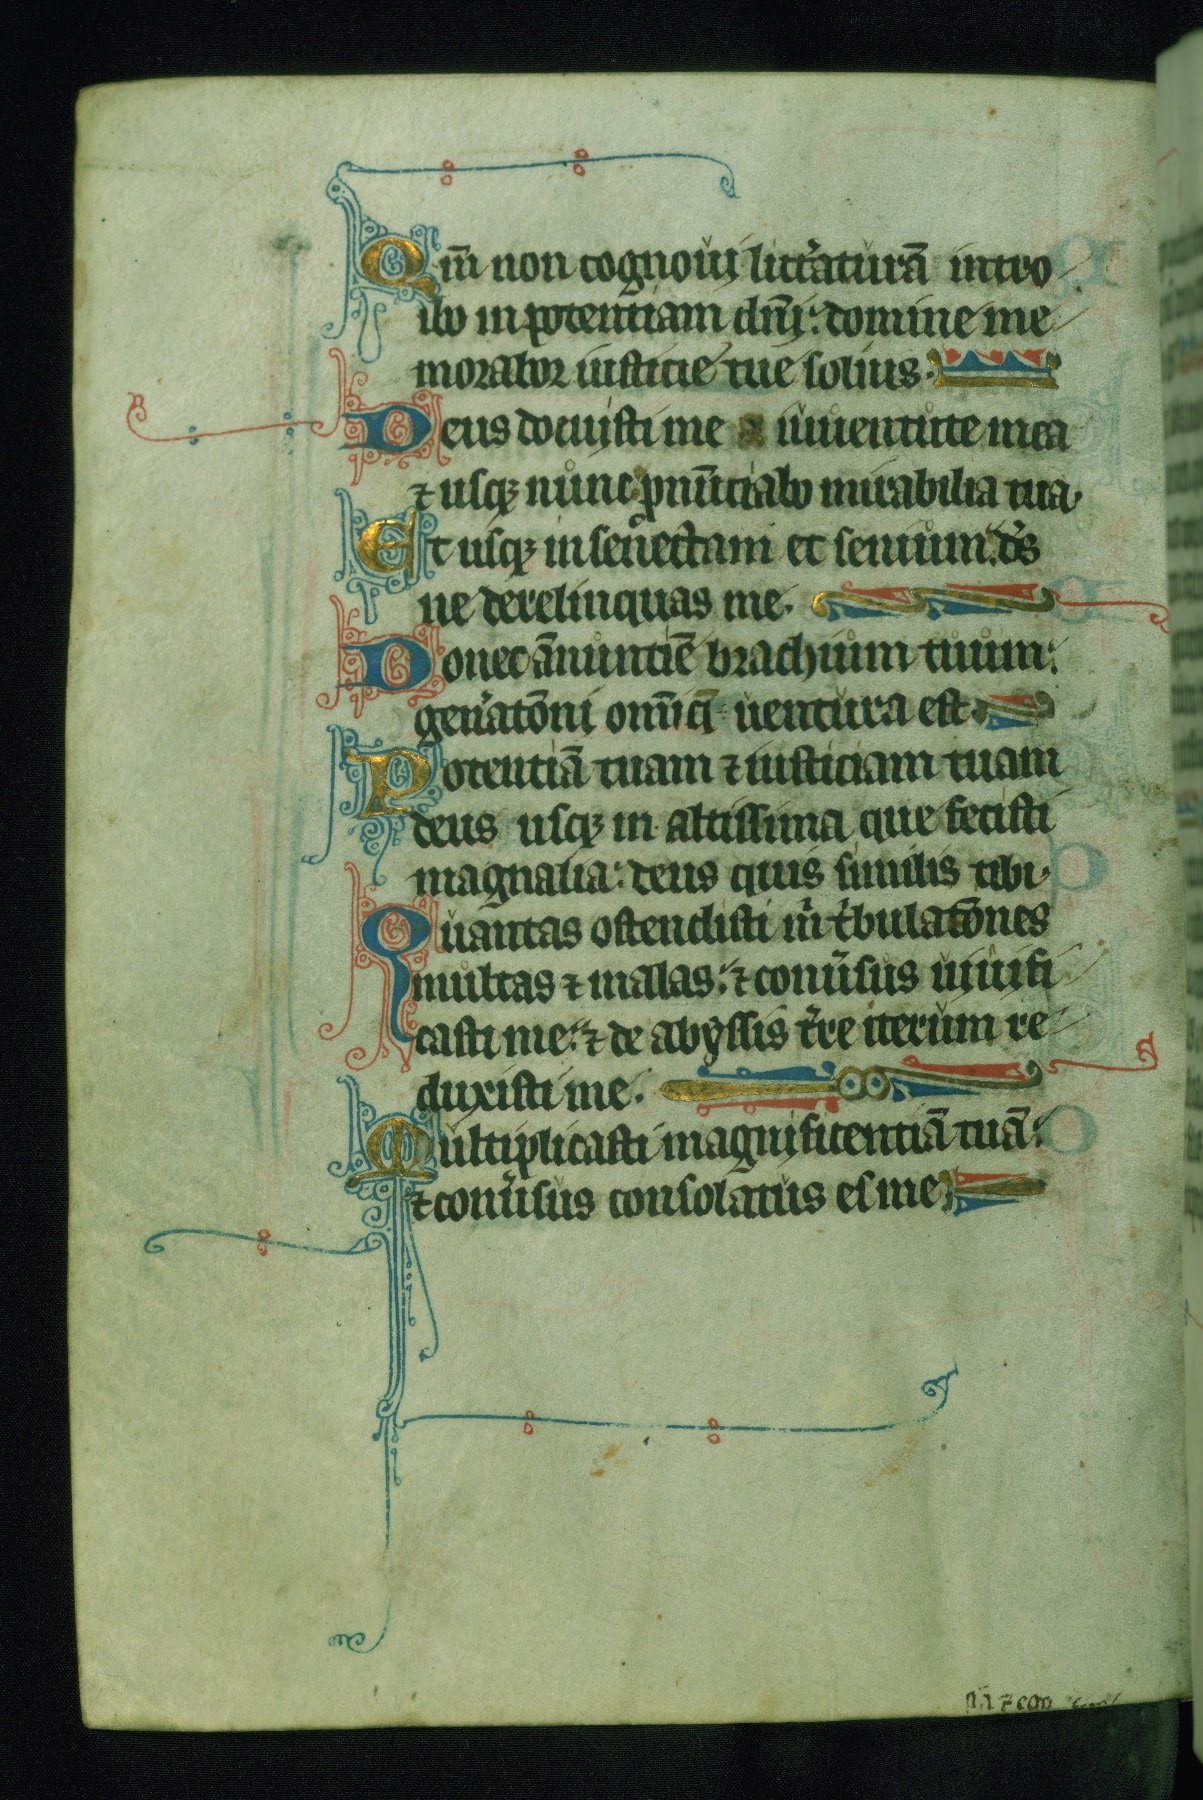 Qm̄ non cognoui litt̾aturā intro
ibo in potentiam dn̄i: domine me
morabor iusticie tue solius.
Deus docuisti me a iuuentute mea
⁊ usqꝫ nunc ꝓnūciabo mirabilia tua.
Et usqꝫ in senectam et senium: ds̄
ne derelinquas me.
Donec ānuntiē brachium tuum:
gen̾atōni omī q̄ uentura est
Potentiā tuam ⁊ iusticiam tuam
deus usqꝫ in altissima que fecisti
magnalia: deus quis similis tibi.
Quantas ostendisti m̄ t̾bulatōnes
multas ⁊ malas: ⁊ conu̾sus uiuifi
casti me: ⁊ de abyssis t̾re iterum re
duxisti me.
Multiplicasti magnificentiā tuā:
⁊ conu̾sus consolatus es me